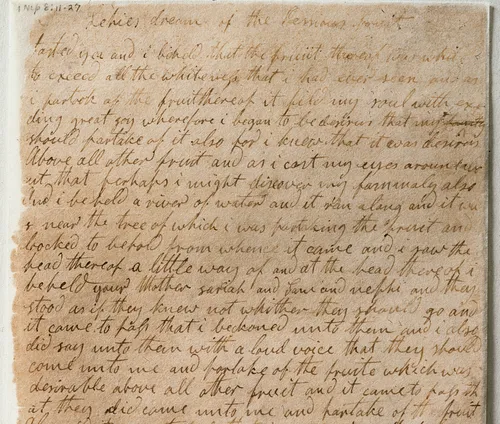 1 Nep 8:11-27
Lehies dream of the
tasted yea and i beheld that the fruiit thereof was whit
to exeed all the whiteness that i had ever seen and as
i partook of the fruit thereof it fild my soul with exe
ding great joy wherefore i began to be desirus that my
should partake of it also for i knew that it was desirus
above all other fruit and as i cast my eyes around
out that perhaps i might discover my fammaly also
and i beheld a river of water and it ran along and it wa
s near the tree of which i was partaking the fruit and
looked to behold from whence it came and i saw the
head thereof a little way of and at the head thereof i
beheld your Mother sariah and Sam and nephi and they
stood as if they knew not whither they should go and
it came to pass that i beckoned unto them and i also
did say unto them with a loud voice that they should
come unto me and partake of the fruite which was
desirable above all other fruit and it came to pass th
at they did came unto me and partake of the fruit